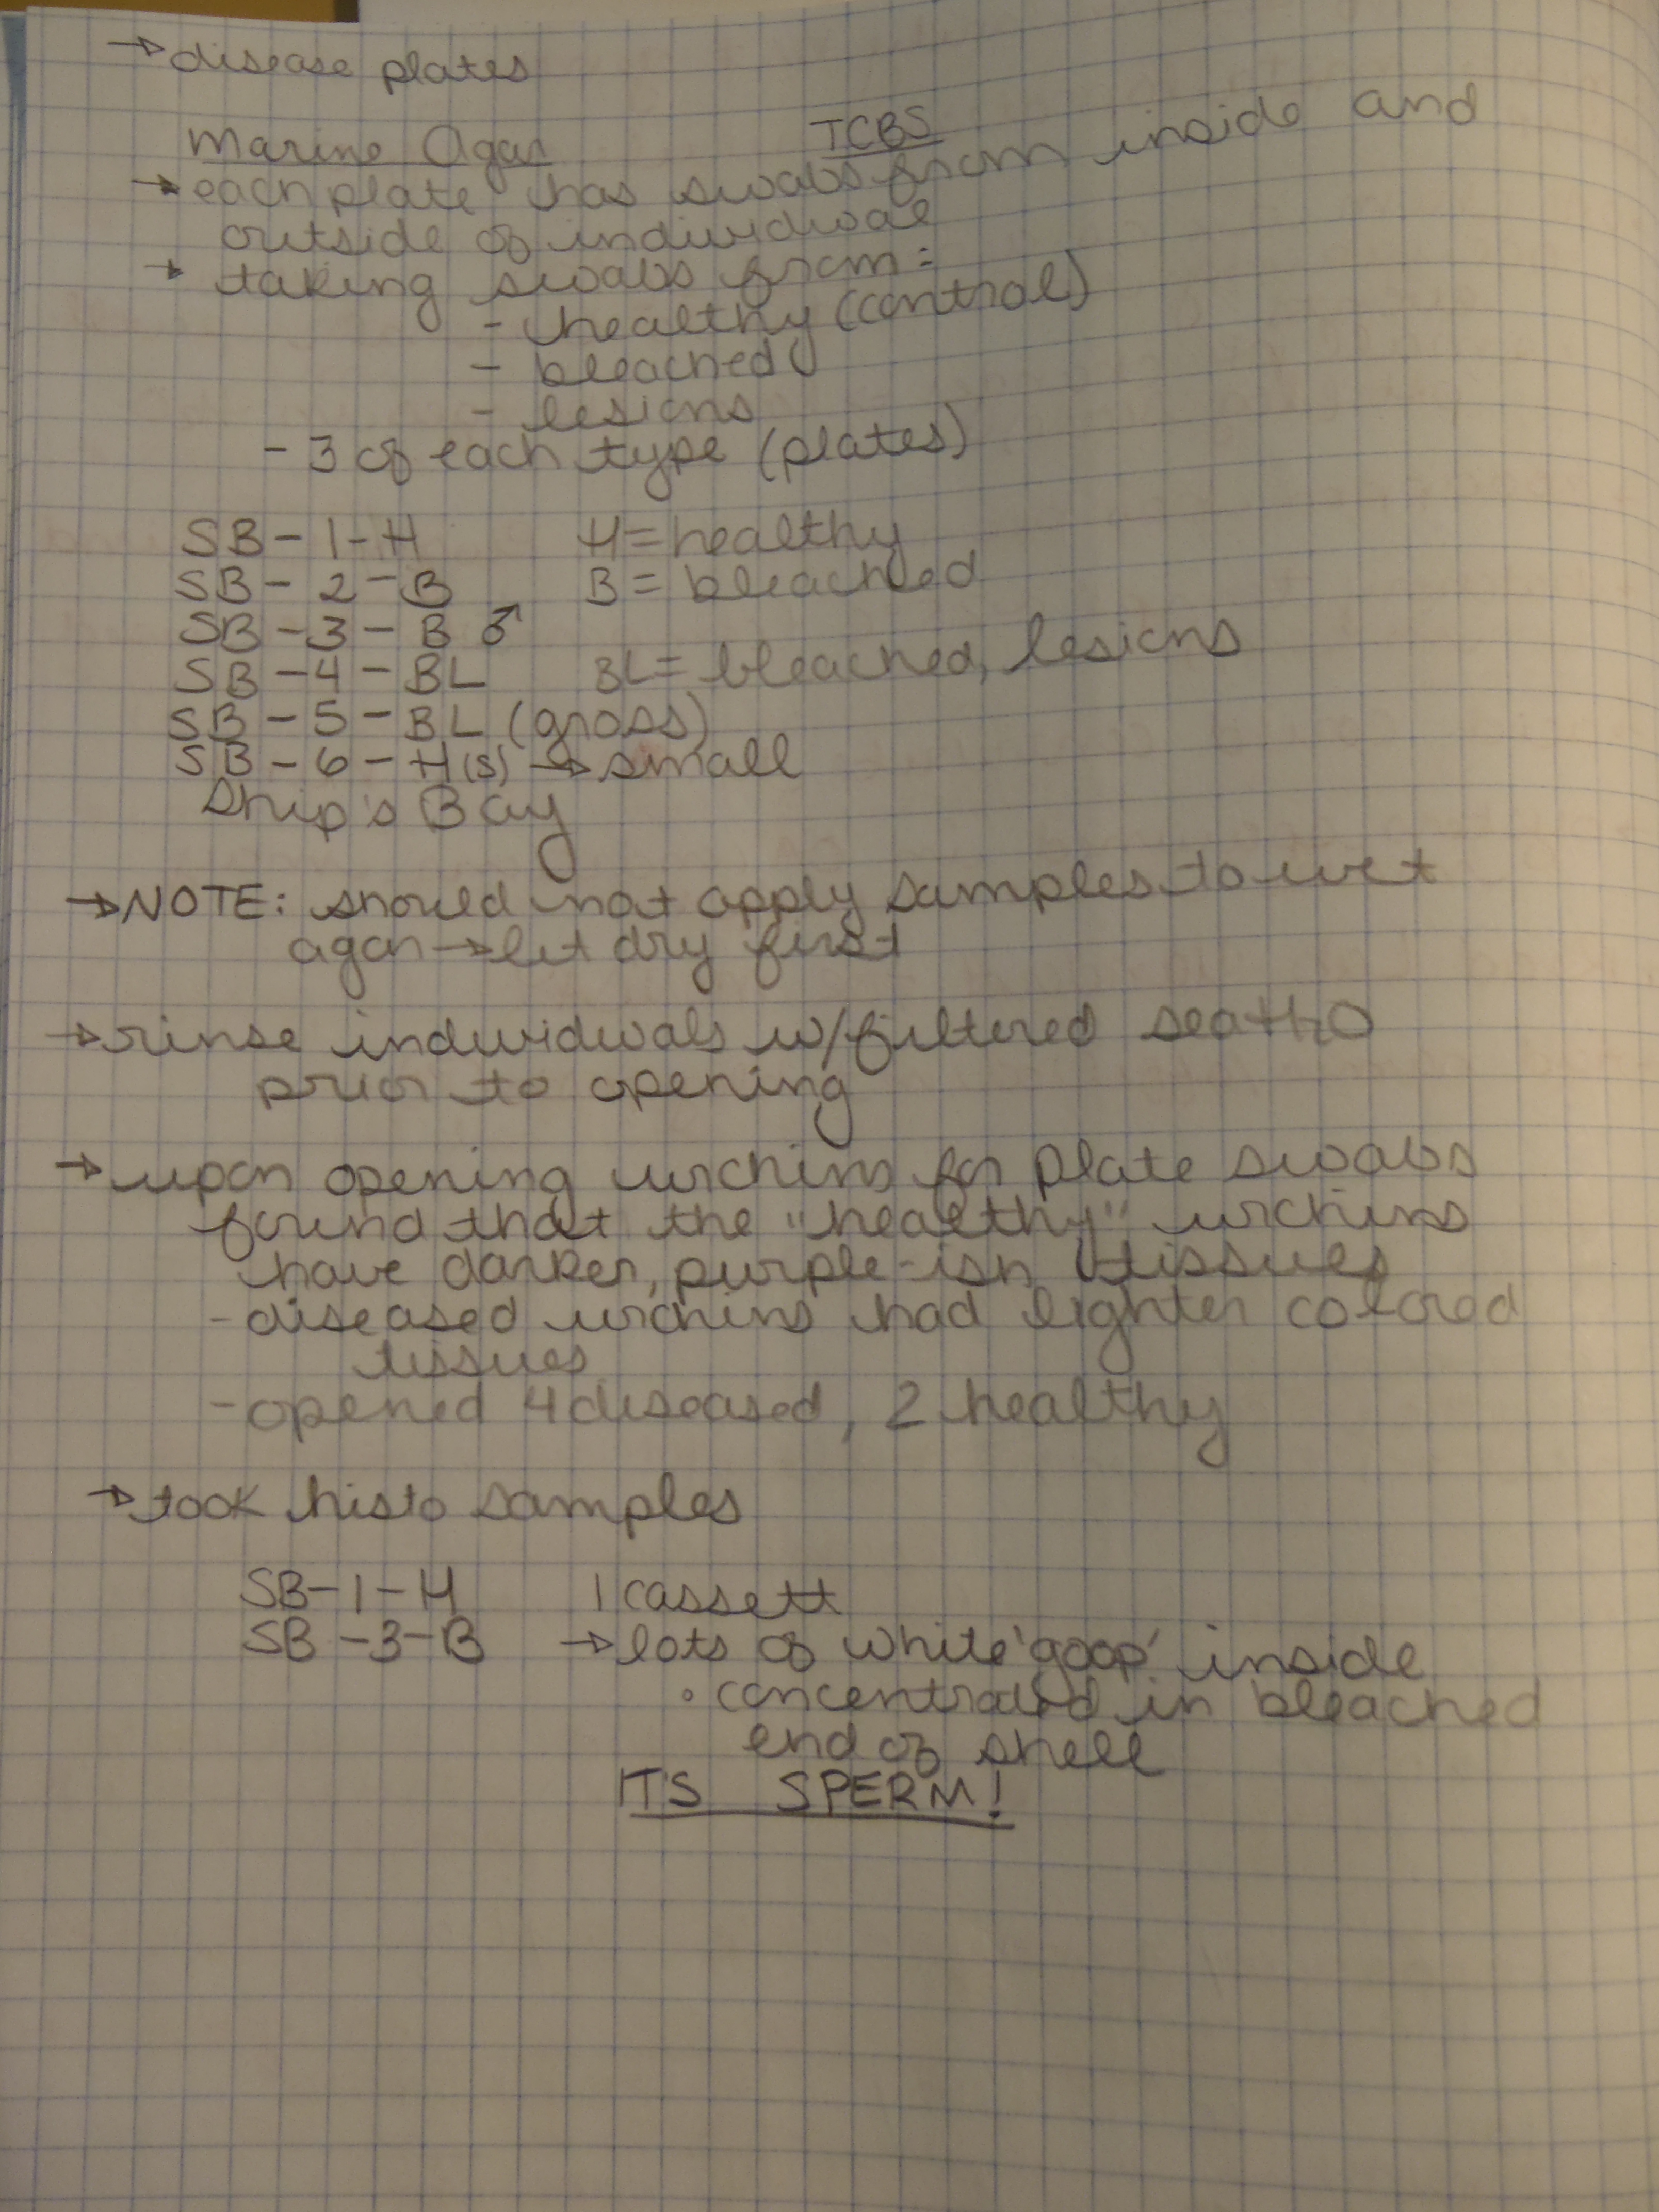 → disease plates
Marine Agar TCBS
→ each plate has swabs from inside and
outside of individual
→ taking swabs from:
- healthy (control)
- bleached
- lesions
- 3 of each type (plates)
SB-1-H H = healthy
SB-2-B B = bleached
SB-3-B ♂
SB-4-BL BL = bleached, lesions
SB-5-BL (gross)
SB-6-H(S) → small
Ship's Bay
→ NOTE: should not apply samples to wet
agar → let dry first
→ rinse individuals w/ filtered sea H2O
prior to opening
→ upon opening urchins for plate swabs
found that the "healthy" urchins
have darker, purple-ish tissues
- diseased urchins had lighter colored
tissues
- opened 4 diseased, 2 healthy
→ took histo samples
SB-1-H 1 cassett
SB-3-B → lots of white 'goop' inside
• concentrated in bleached
end of shell
ITS SPERM!